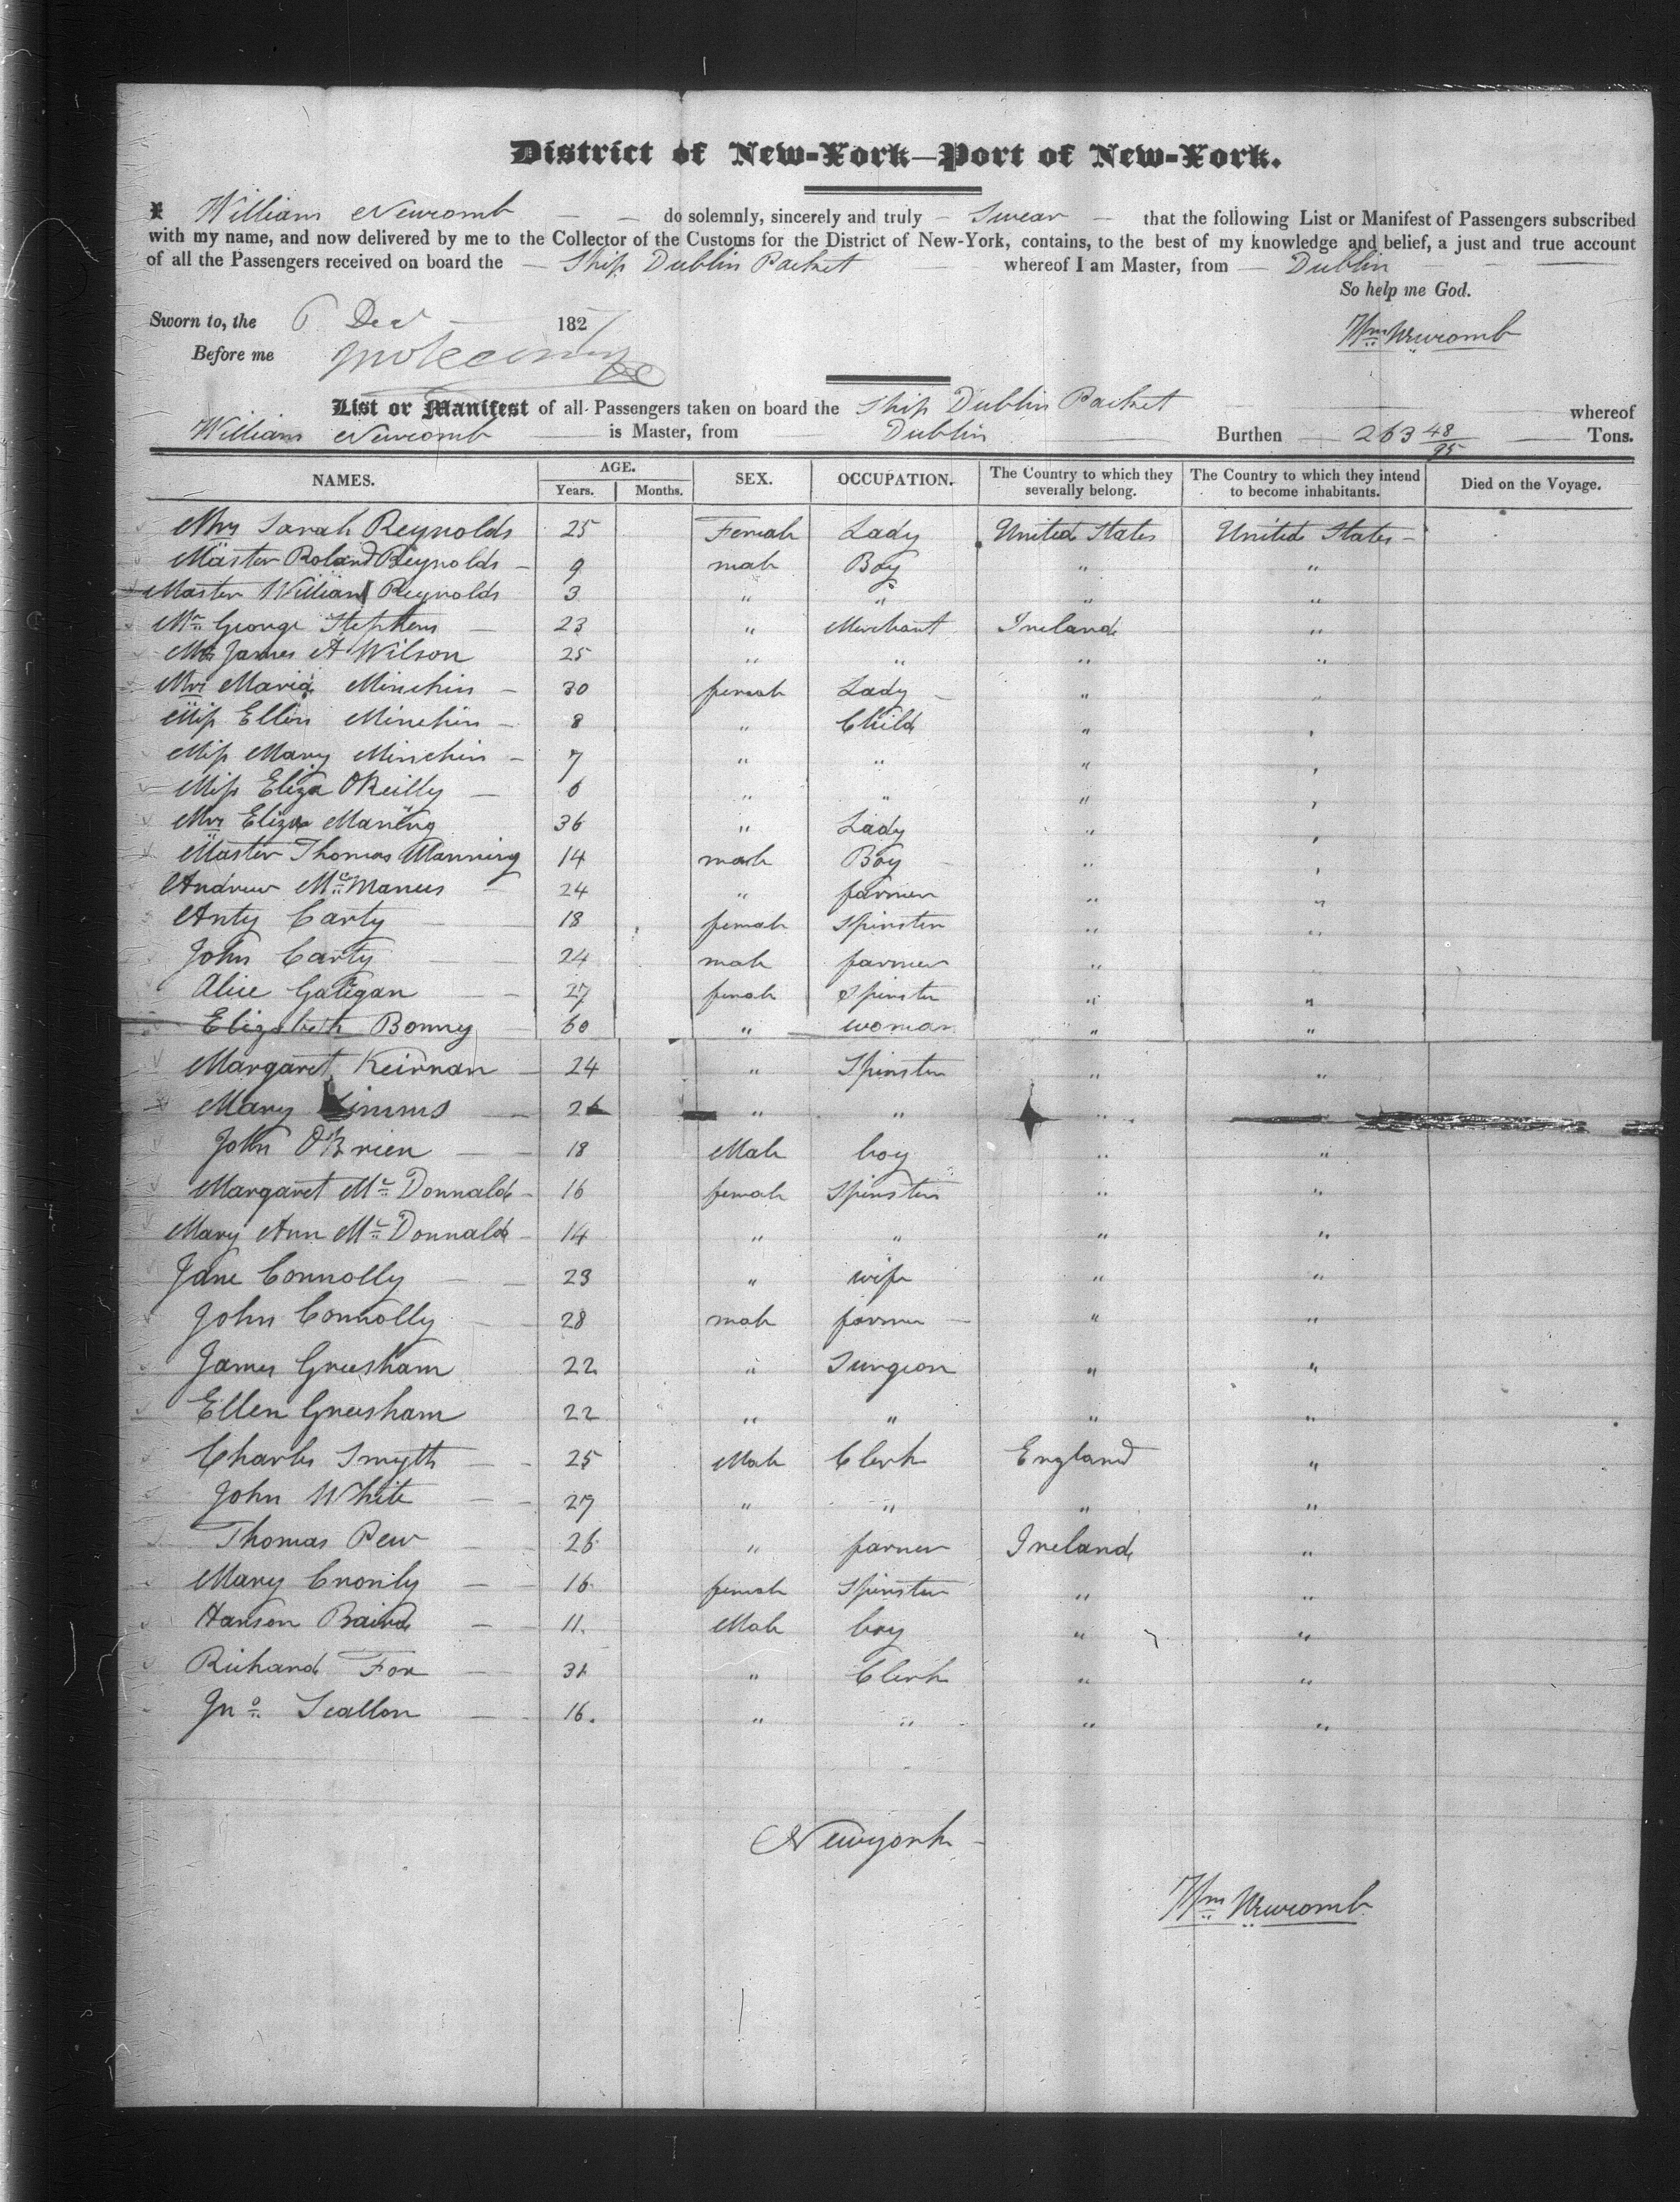 District of New-York—Port of New-York.
I William Newcomb — — do solemnly, sincerely and truly — Swear — that the following List or Manifest of Passengers subscribed
with my name, and now delivered by me to the Collector of the Customs for the District of New-York, contains, to the best of my knowledge and belief, a just and true account
of all the Passengers received on board the — Ship Dublin Packet — whereof I am Master, from — Dublin —
So help me God.
Sworn to, the 6 Decr — 1827
Wm Newcomb
Before me
List or Manifest of all Passengers taken on board the Ship Dublin Packet — whereof
William Newcomb — is Master, from — Dublin — Burthen — 263 48/95 — Tons.
NAMES. AGE. SEX. OCCUPATION. The Country to which they severally belong. The Country to which they intend to become inhabitants. Died on the Voyage.
Years. Months.
Mrs Sarah Reynolds 25 Female Lady United States United States —
Master Roland Reynolds — 9 male Boy " "
Master William Reynolds 3 " " " "
Mr George Stephens — 23 " Merchant Ireland "
Mr James A Wilson 25 " " " "
Mrs Maria Minchin — 30 female Lady — " "
Miss Ellin Minchin — 8 " Child " "
Miss Mary Minchin — 7 " " " "
Miss Eliza OReilly — 6 " " " "
Mrs Eliza Maning 36 " Lady " "
Master Thomas Manning 14 male Boy " "
Andrew McManus — 24 " farmer " "
Anty Carty — 18 female Spinster " "
John Carty — — 24 male farmer " "
Alice Galigan — — 27 female Spinster " "
Elizabeth Bonny 60 " woman " "
Margaret Keirnan — 24 " Spinster " "
Mary Simms — 26 " " "
John OBrien — — 18 Male boy " "
Margaret McDonnald — 16 female Spinster " "
Mary Ann McDonnald — 14 " " " "
Jane Connolly — — 23 " wife " "
John Connolly — — 28 male farmer — " "
James Greesham 22 " Surgeon " "
Ellen Greesham 22 " " " "
Charles Smyth — — 25 Male Clerk England "
John White — — 27 " " " "
Thomas Pew — 26 " farmer Ireland "
Mary Cronily — — 16 female Spinster " "
Hanson Baird — — 11. Male boy " "
Richard Fox — 31 " Clerk " "
Jno Scallon — — 16. " " " "
Newyork —
Wm Newcomb